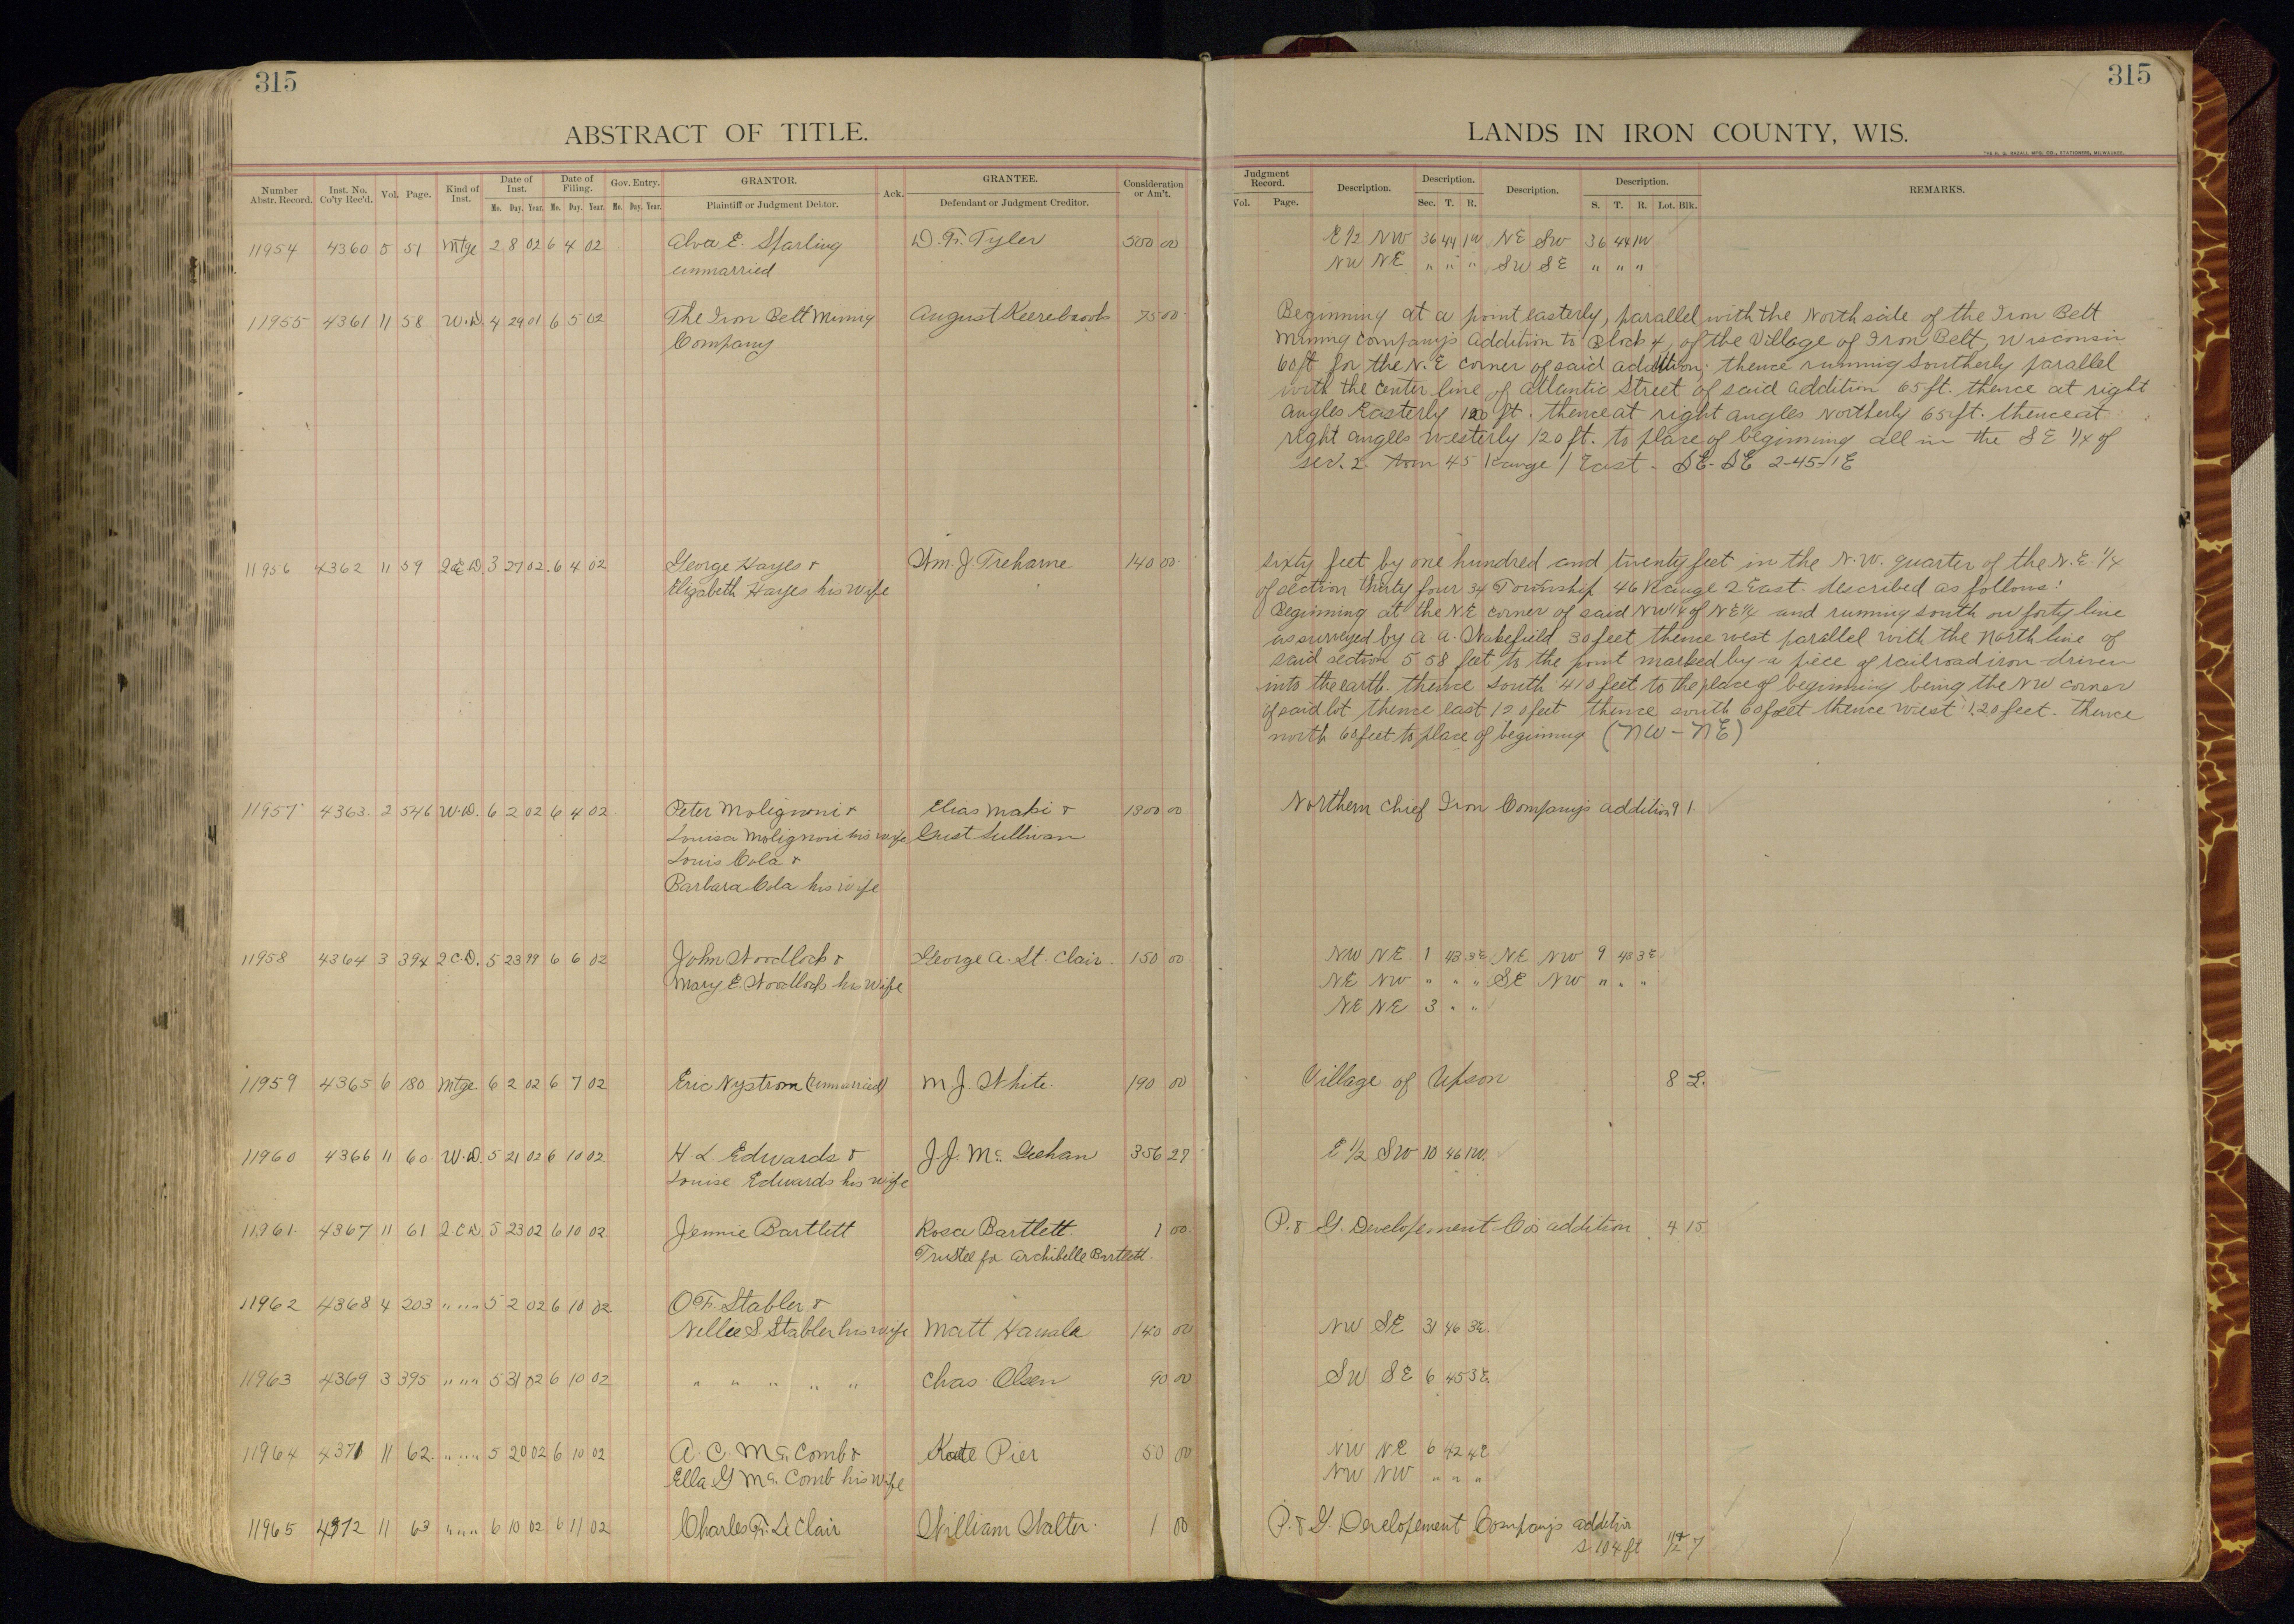 315
ABSTRACT OF TITLE.
Number Abstr. Record. Inst. No. Co'ty Rec'd. Vol. Page. Kind of Inst. Date of Inst. Date of Filing. Gov. Entry. GRANTOR. Ack. GRANTEE. Consideration or Am't.
Mo. Day. Year. Mo. Day. Year. Mo. Day. Year. Plaintiff or Judgment Debtor. Defendant or Judgment Creditor.
11954 4360 5 51 Mtge 2 8 02 6 4 02 Alva E. Sparling D. F. Tyler 500 00
unmarried
11955 4361 11 58 W.D. 4 29 01 6 5 02 The Iron Belt Mining August 75 00
Company
11956 4362 11 59 2CD 3 27 02 6 4 02 George Hayes & Wm. J. Treharne 140 00
Elizabeth Hayes his wife
11957 4363 2 546 W.D. 6 2 02 6 4 02 Peter Molignoni & Elias Maki & 1300 00
Louisa Molignoni his wife Gust Sullivan
Louis Cola &
Barbara Cola his wife
11958 4364 3 394 2C.D. 5 23 99 6 6 02 John Woodlock & George A. St. Clair 150 00
Mary E. Woodlock his wife
11959 4365 6 180 Mtge 6 2 02 6 7 02 Eric Nystrom (unmarried) M. J. White. 190 00
11960 4366 11 60 W.D. 5 21 02 6 10 02 H L Edwards & J. J. Mc. Geehan 356 27
Louise Edwards his wife
11961 4367 11 61 2CD 5 23 02 6 10 02 Jennie Bartlett Rosa Bartlett. 1 00
Trustee for Archibelle Bartlett.
11962 4368 4 203 " " " 5 2 02 6 10 02 O F. Stabler &
Nellie S. Stabler his wife Matt 140 00
11963 4369 3 395 " " " 5 31 02 6 10 02 " " " " " Chas. Olsen 90 00
11964 4371 11 62. " " " 5 20 02 6 10 02 A. C. Mc. Comb & Kate Pier 50 00
Ella G Mc. Comb his wife
11965 4372 11 63 " " " 6 10 02 6 11 02 Charles F. Le Clair William Walter. 1 00
315
LANDS IN IRON COUNTY, WIS.
THE H. G. RAZALL MFG. CO., STATIONERS, MILWAUKEE.
Judgment Record. Description. Description. Description. Description. REMARKS.
Vol. Page. Sec. T. R. S. T. R. Lot. Blk.
E 1/2 NW 36 44 1W NE SW 36 44 1W
NW NE " " " SW SE " " "
Beginning at a point easterly, parallel with the North side of the Iron Belt
Mining Company's addition to Block 4, of the Village of Iron Belt, Wisconsin
60 ft for the N.E corner of said addition; thence running Southerly parallel
with the center line of Atlantic Street of said addition 65 ft. thence at right
angles Easterly 120 ft. thence at right angles Northerly 65 ft. thence at
right angles Westerly 120 ft. to place of beginning all in the SE 1/4 of
sec. 2. Town 45 Range 1 East - SE - SE 2-45-1E
Sixty feet by one hundred and twenty feet in the N.W. quarter of the N.E. 1/4
of section thirty four 34 Township 46 Range 2 East. described as follows:
Beginning at the NE corner of said NW 1/4 of NE 1/4 and running south on forty line
as surveyed by A. A. Wakefield 30 feet thence west parallel with the North line of
said section 558 feet to the point marked by a piece of railroad iron driven
into the earth. thence south 410 feet to the place of beginning being the NW corner
of said lot thence east 120 feet thence south 60 feet thence west 120 feet. thence
north 60 feet to place of beginning (NW - NE)
Northern Chief Iron Company's addition 9 1.
NW NE 1 43 3E NE NW 9 43 3E
NE NW " " " SE NW " " "
NE NE 3 " "
Village of Upson 8 2.
E 1/2 SW 10 46 1W.
P. & G. Developement Co's addition 4 15
NW SE 31 46 3E.
SW SE 6 45 3E.
NW NE 6 42 4E
NW NW " " "
P. & G. Developement Company's addition
S 104 ft 7